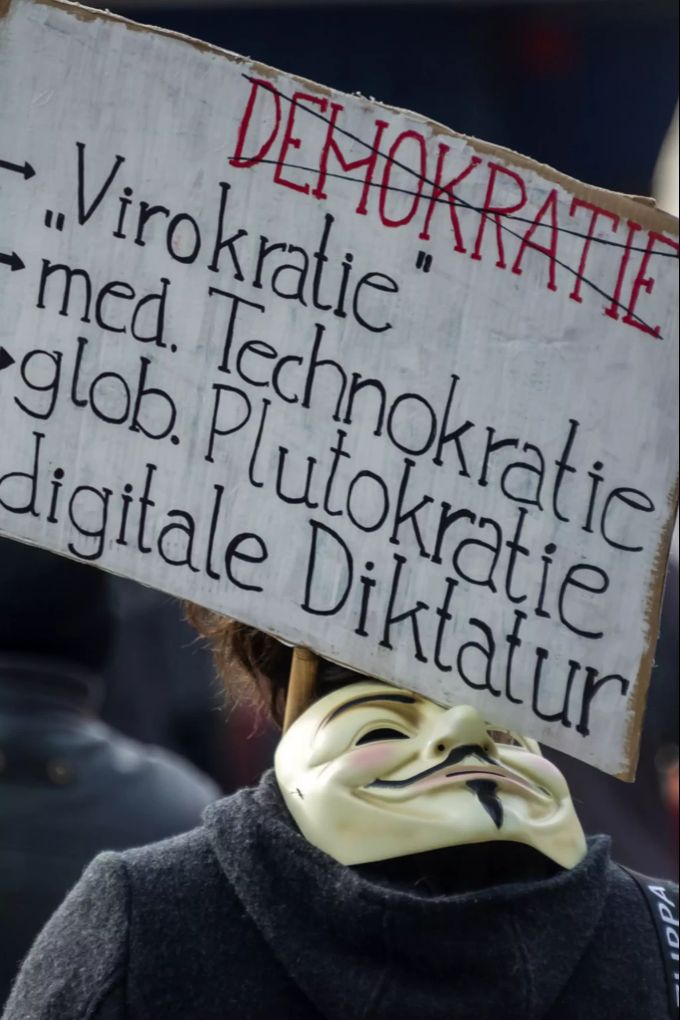 DEMOKRATIE
→ „Virokratie"
→ med. Technokratie
→ glob. Plutokratie
digitale Diktatur